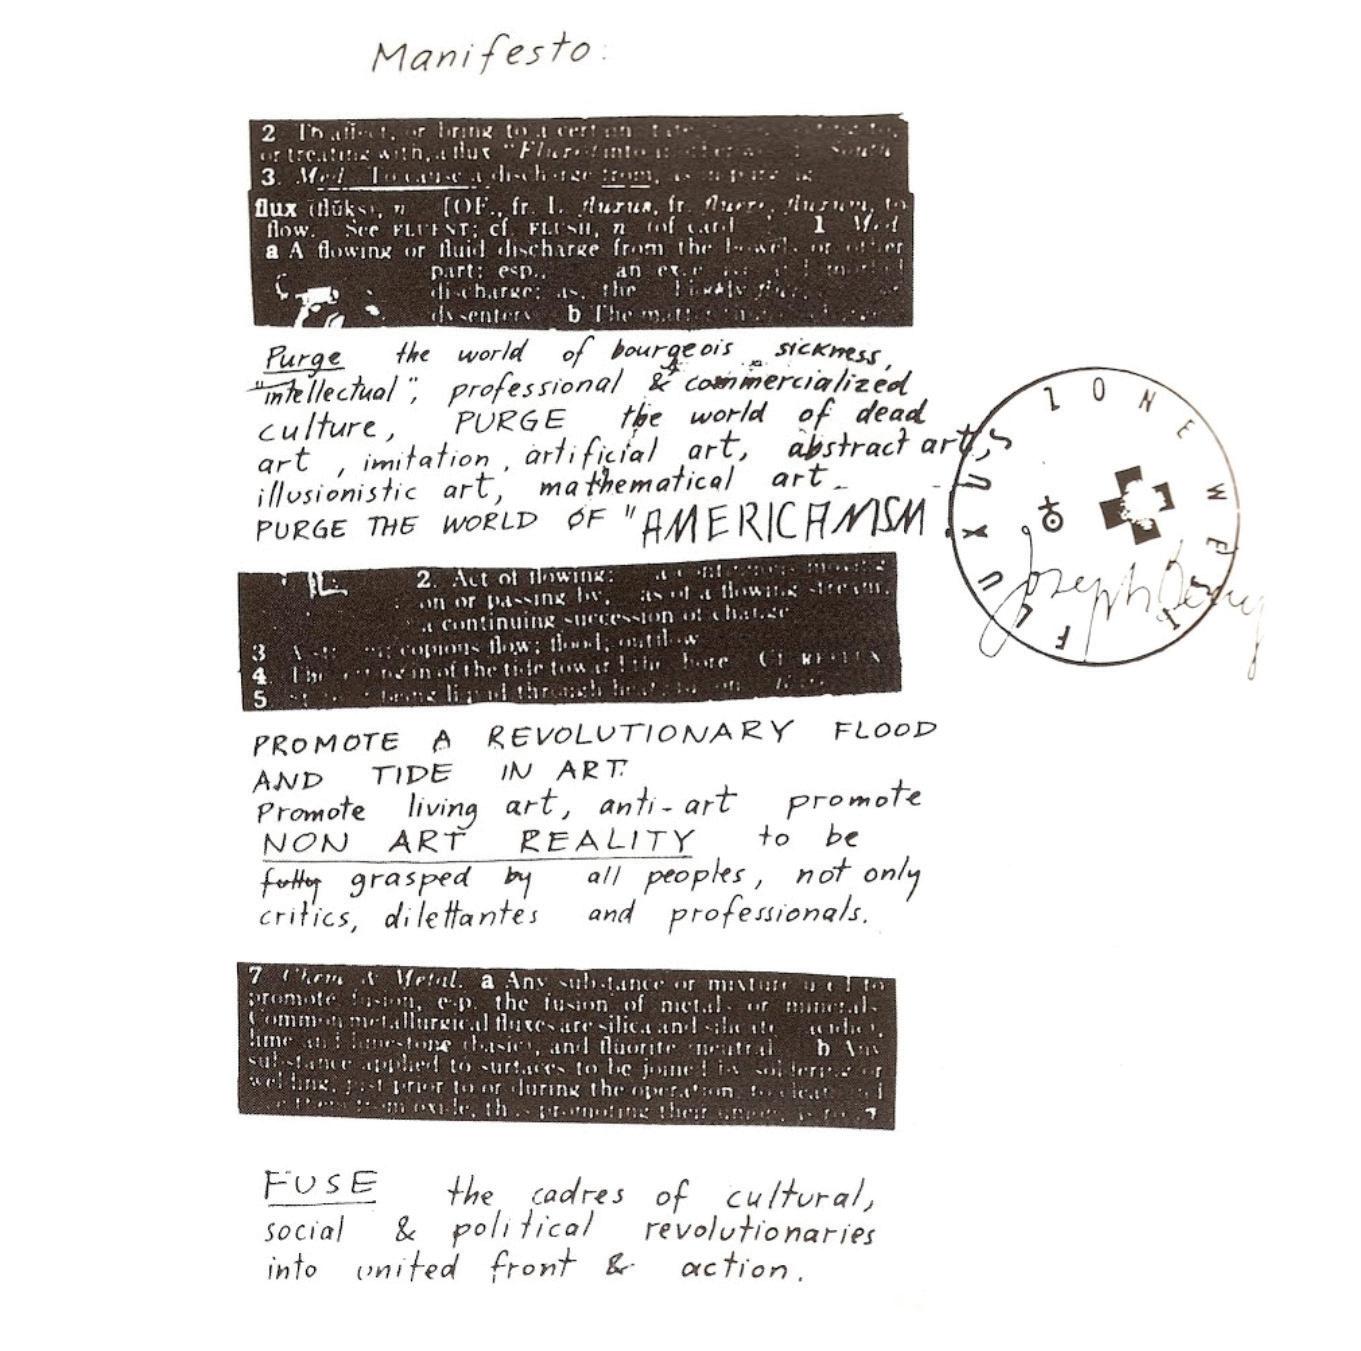 Manifesto:
2 To affect, or bring to a certain
or treating with, a flux "Fluxed into another world." South
3. Med. To cause a discharge from, as in purging
flux (flŭks), n. [OF., fr. L. fluxus, fr. fluere, fluxum, to
flow. See FLUENT; cf. FLUSH, n. (of card 1 Med.
a A flowing or fluid discharge from the bowels or other
part; esp., an excessive and morbid
discharge; as, the bloody flux, or
dysentery b The matter
Purge the world of bourgeois sickness,
"intellectual", professional & commercialized
culture, PURGE the world of dead
art , imitation , artificial art, abstract art,
illusionistic art, mathematical art
PURGE THE WORLD OF "AMERICANISM
2. Act of flowing: a continuous moving
on or passing by, as of a flowing stream;
a continuing succession of change
3 A stream; copious flow; flood; outflow
4 The setting in of the tide toward the shore Cf. REFLUX
5 being liquid through heat; fusion
FLUXUS ZONE WEST
Joseph Beuys
PROMOTE A REVOLUTIONARY FLOOD
AND TIDE IN ART.
Promote living art, anti-art promote
NON ART REALITY to be
fully grasped by all peoples, not only
critics, dilettantes and professionals.
7 Chem & Metal. a Any substance or mixture used to
promote fusion, esp. the fusion of metals or minerals
Common metallurgical fluxes are silica and silicates (acidic),
lime and limestone (basic), and fluorite (neutral) b Any
substance applied to surfaces to be joined by soldering or
welding, just prior to or during the operation, to clean and
free them from oxide, thus promoting their union, as rosin
FUSE the cadres of cultural,
social & political revolutionaries
into united front & action.